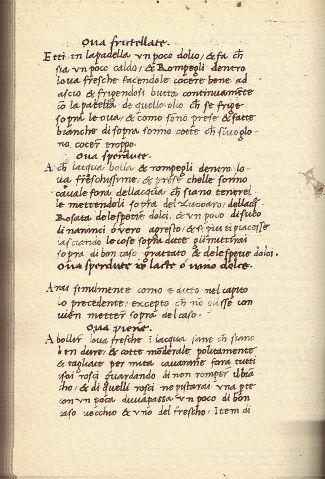 Ova frictellate.
Etti in la padella un poco dolio, & fa ch
sia un poco caldo, & Rompegli dentro
lova fresche facendole cocere bene ad
ascio & frigendosi butta continuamente
cō la patella de quello olio ch se frige
sopra le ova, & como sono prese & fatte
bianche di sopra sonno cotte ch si vogliono
no cocer troppo.
Ova sperdute.
A ch lacqua bolla & rompegli dentro lo-
va freschissime, & prese chelle sonno
cavale fora dellacqua ch siano tenerel
le mettendoli sopra del zuccaro, dellacq
Rosata delespetie dolci, & un poco di suco
di naranci overo agresto, & si piu ti piacesse
lasciando le cose sopra ditte gli mitirai
sopra di bon caso grattato & delespetie dolci.
Ova sperdute lacte o vino dolce.
Arai similmente como e ditto nel capito
lo precedente, excepto ch no gisse con
vien metter sopra del caso.
Ova piene.
A bollir lova fresche i lacqua sane ch siano
ben dure, & cotte
& tagliate per mità cavarane fora tutti
roscì guardando di non romper il biā
cho, & di quelli rosci ne pistarai una pte
con un poca duva passa un poco di bon
caso vecchio & uno del frescho, Item di